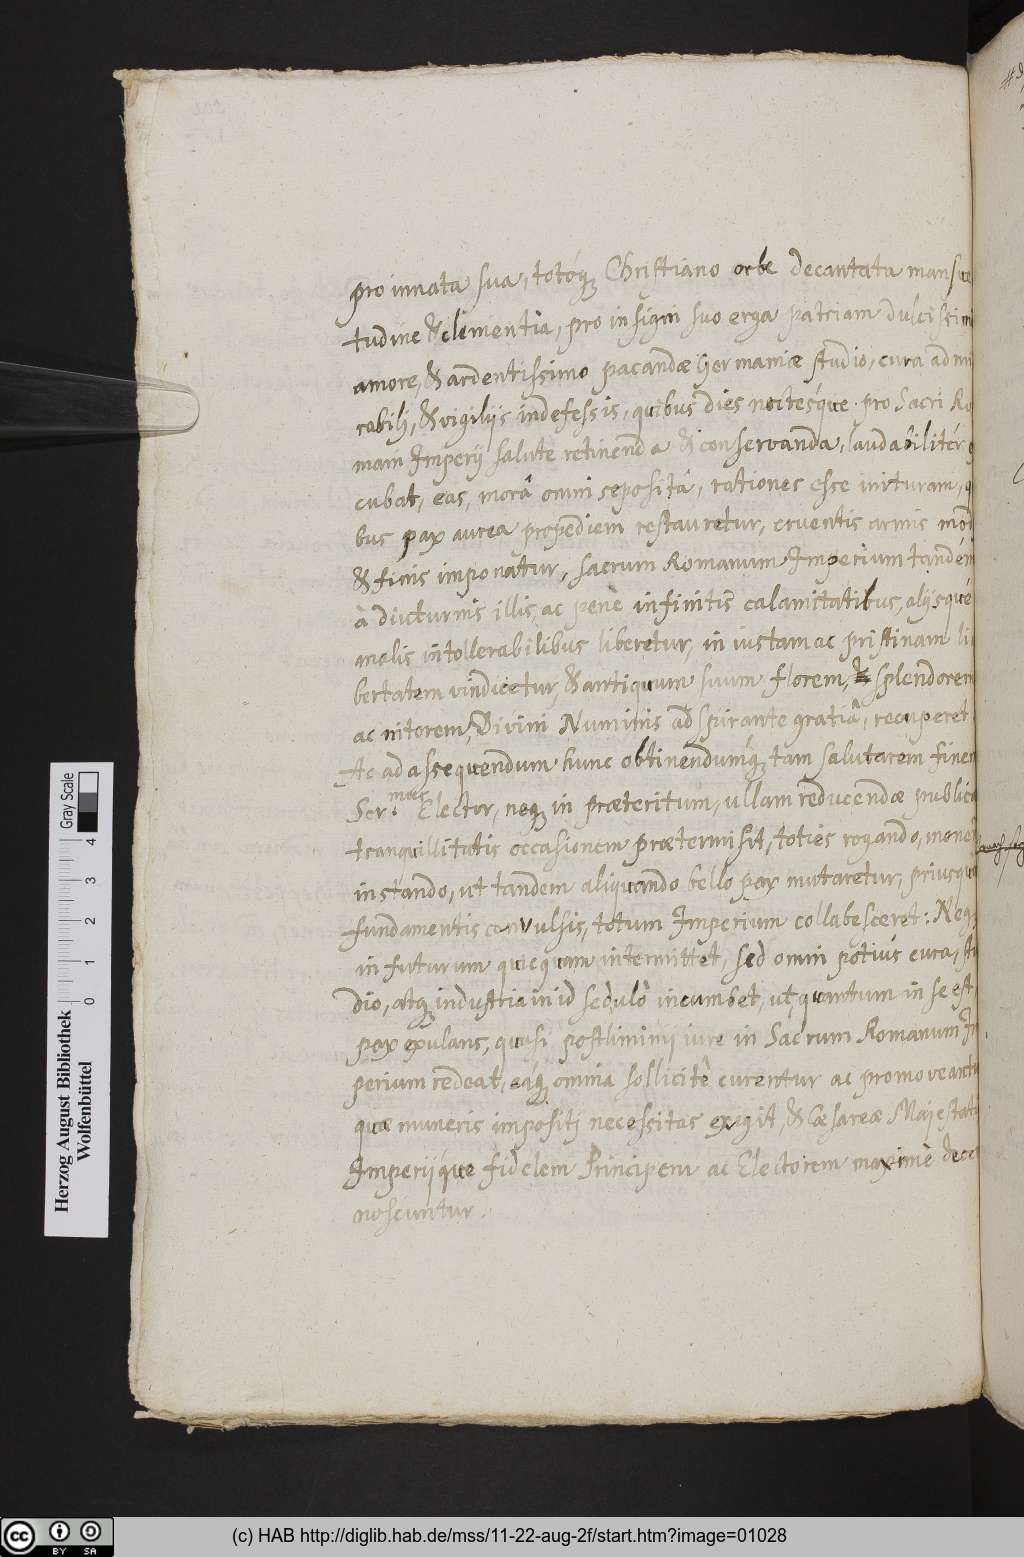 pro innata sua, totóq; Christiano orbe decantata mansue
tudine & clementia, pro insigni suo erga patriam dulcissim
amore, & ardentissimo pacandæ Germaniæ studio, cura admi
rabili, & vigilijs indefessis, quibus dies noctesque pro Sacri Ro
mani Imperij salute retinenda & conservanda, laudabilitér
cubat, eas, morâ omni sepositâ, rationes esse inituram, q
bus pax aurea propediem restauretur, cruentis armis mod
& finis imponatur, sacrum Romanum Imperium tandém
à diuturnis illis, ac penè infinitis calamitatibus, alijsqué
malis intollerabilibus liberetur, in iustam ac pristinam li
bertatem vindicetur, & antiquum suum florem, & splendorem
ac nitorem, Divini Numinis adspirante gratiâ, recuperet
Ac ad assequendum hunc obtinendumq́; tam salutarem finem
Ser.mus Elector, neq; in præteritum, ullam reducendæ publica
tranquillitatis occasionem prætermisit, toties rogando, monen
instando, ut tandem aliquando bello pax mutaretur, priusqua
fundamentis convulsis, totum Imperium collabesceret: Neq;
in futurum quicquam intermittet, sed omni potiús cura, stu
dio, atq; industria in id sedulò incumbet, ut, quantum in se est
pax exulans, quasi postliminij iure in Sacrum Romanum Im
perium redeat, eáq; omnia sollicitè curentur ac promoveantu
quæ muneris impositi necessitas exigit, & Cæsareæ Majestati
Imperijque fidelem Principem ac Electorem maximè dece
noscuntur.
Herzog August Bibliothek
Wolfenbüttel
0 1 2 3 4
Gray Scale
cc BY SA
(c) HAB http://diglib.hab.de/mss/11-22-aug-2f/start.htm?image=01028